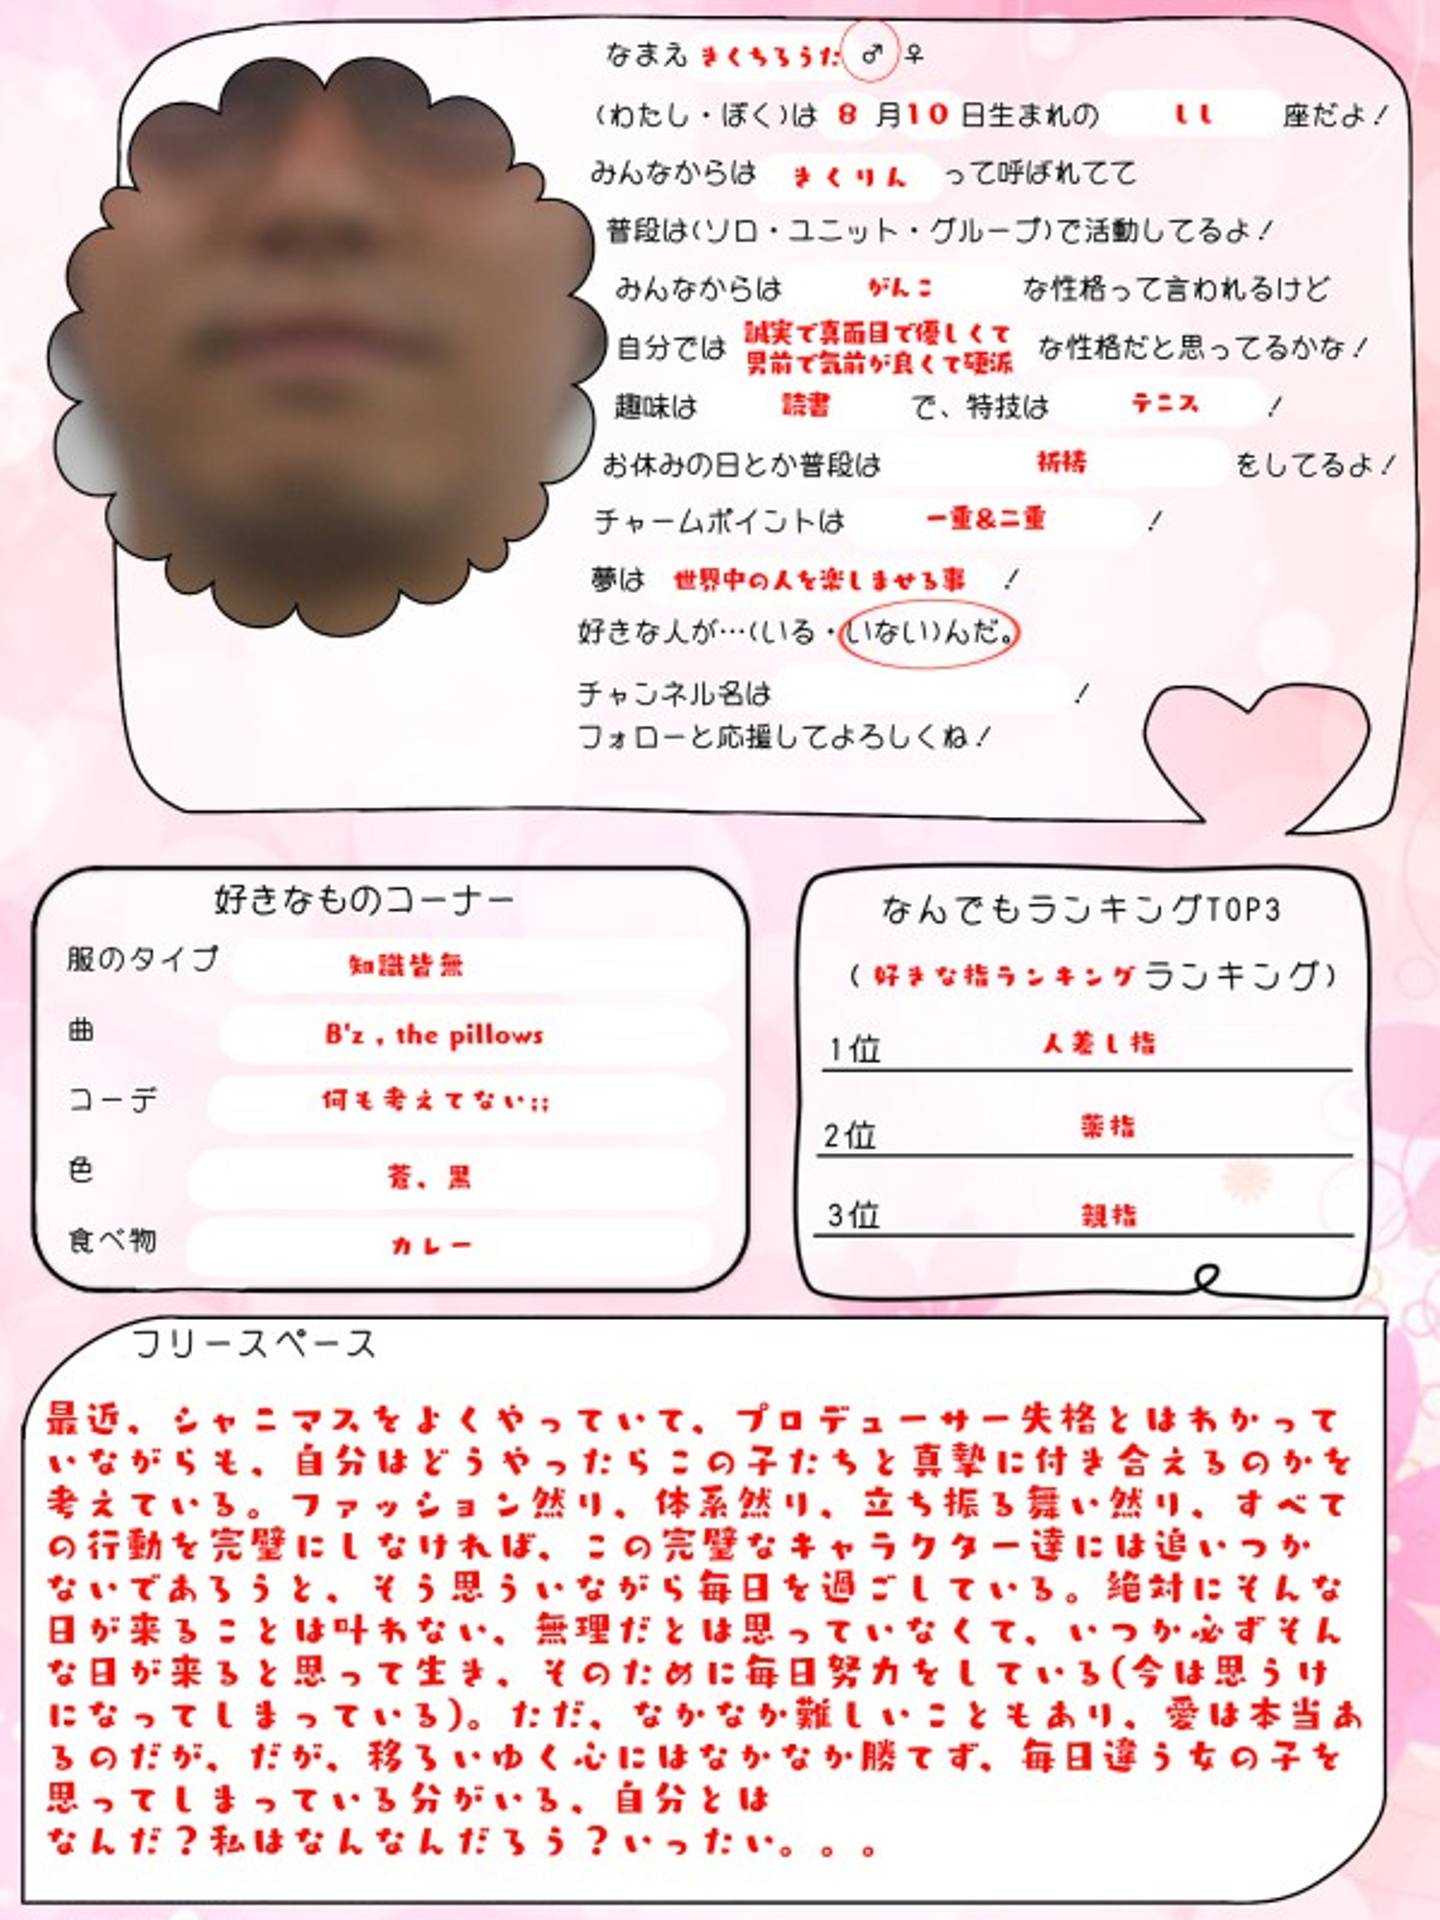 なまえ きくちろうた ♂ ♀
(わたし・ぼく)は 8 月10 日生まれの しし 座だよ！
みんなからは きくりん って呼ばれてて
普段は(ソロ・ユニット・グループ)で活動してるよ！
みんなからは がんこ な性格って言われるけど
自分では 誠実で真面目で優しくて
男前で気前が良くて硬派 な性格だと思ってるかな！
趣味は 読書 で、特技は テニス ！
お休みの日とか普段は 祈祷 をしてるよ！
チャームポイントは 一重&二重 ！
夢は 世界中の人を楽しませる事 ！
好きな人が…(いる・いない)んだ。
チャンネル名は ！
フォローと応援してよろしくね！
好きなものコーナー
服のタイプ 知識皆無
曲 B'z , the pillows
コーデ 何も考えてない;;
色 蒼、黒
食べ物 カレー
なんでもランキングTOP3
(好きな指ランキングランキング)
1位 人差し指
2位 薬指
3位 親指
フリースペース
最近、シャニマスをよくやっていて、プロデューサー失格とはわかって
いながらも、自分はどうやったらこの子たちと真摯に付き合えるのかを
考えている。ファッション然り、体系然り、立ち振る舞い然り、すべて
の行動を完璧にしなければ、この完璧なキャラクター達には追いつか
ないであろうと、そう思ういながら毎日を過ごしている。絶対にそんな
日が来ることは叶わない、無理だとは思っていなくて、いつか必ずそん
な日が来ると思って生き、そのために毎日努力をしている(今は思うけ
になってしまっている)。ただ、なかなか難しいこともあり、愛は本当あ
るのだが、だが、移ろいゆく心にはなかなか勝てず、毎日違う女の子を
思ってしまっている分がいる、自分とは
なんだ？私はなんなんだろう？いったい。。。